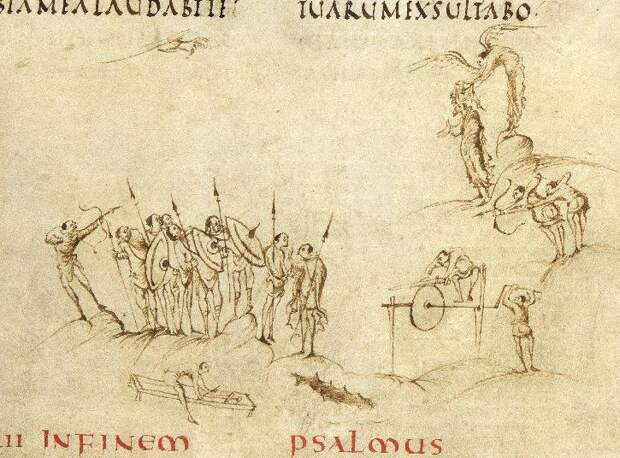 BIAMEALAUDABITTE
TUARUMEXSULTABO·
II INFINEM PSALMUS